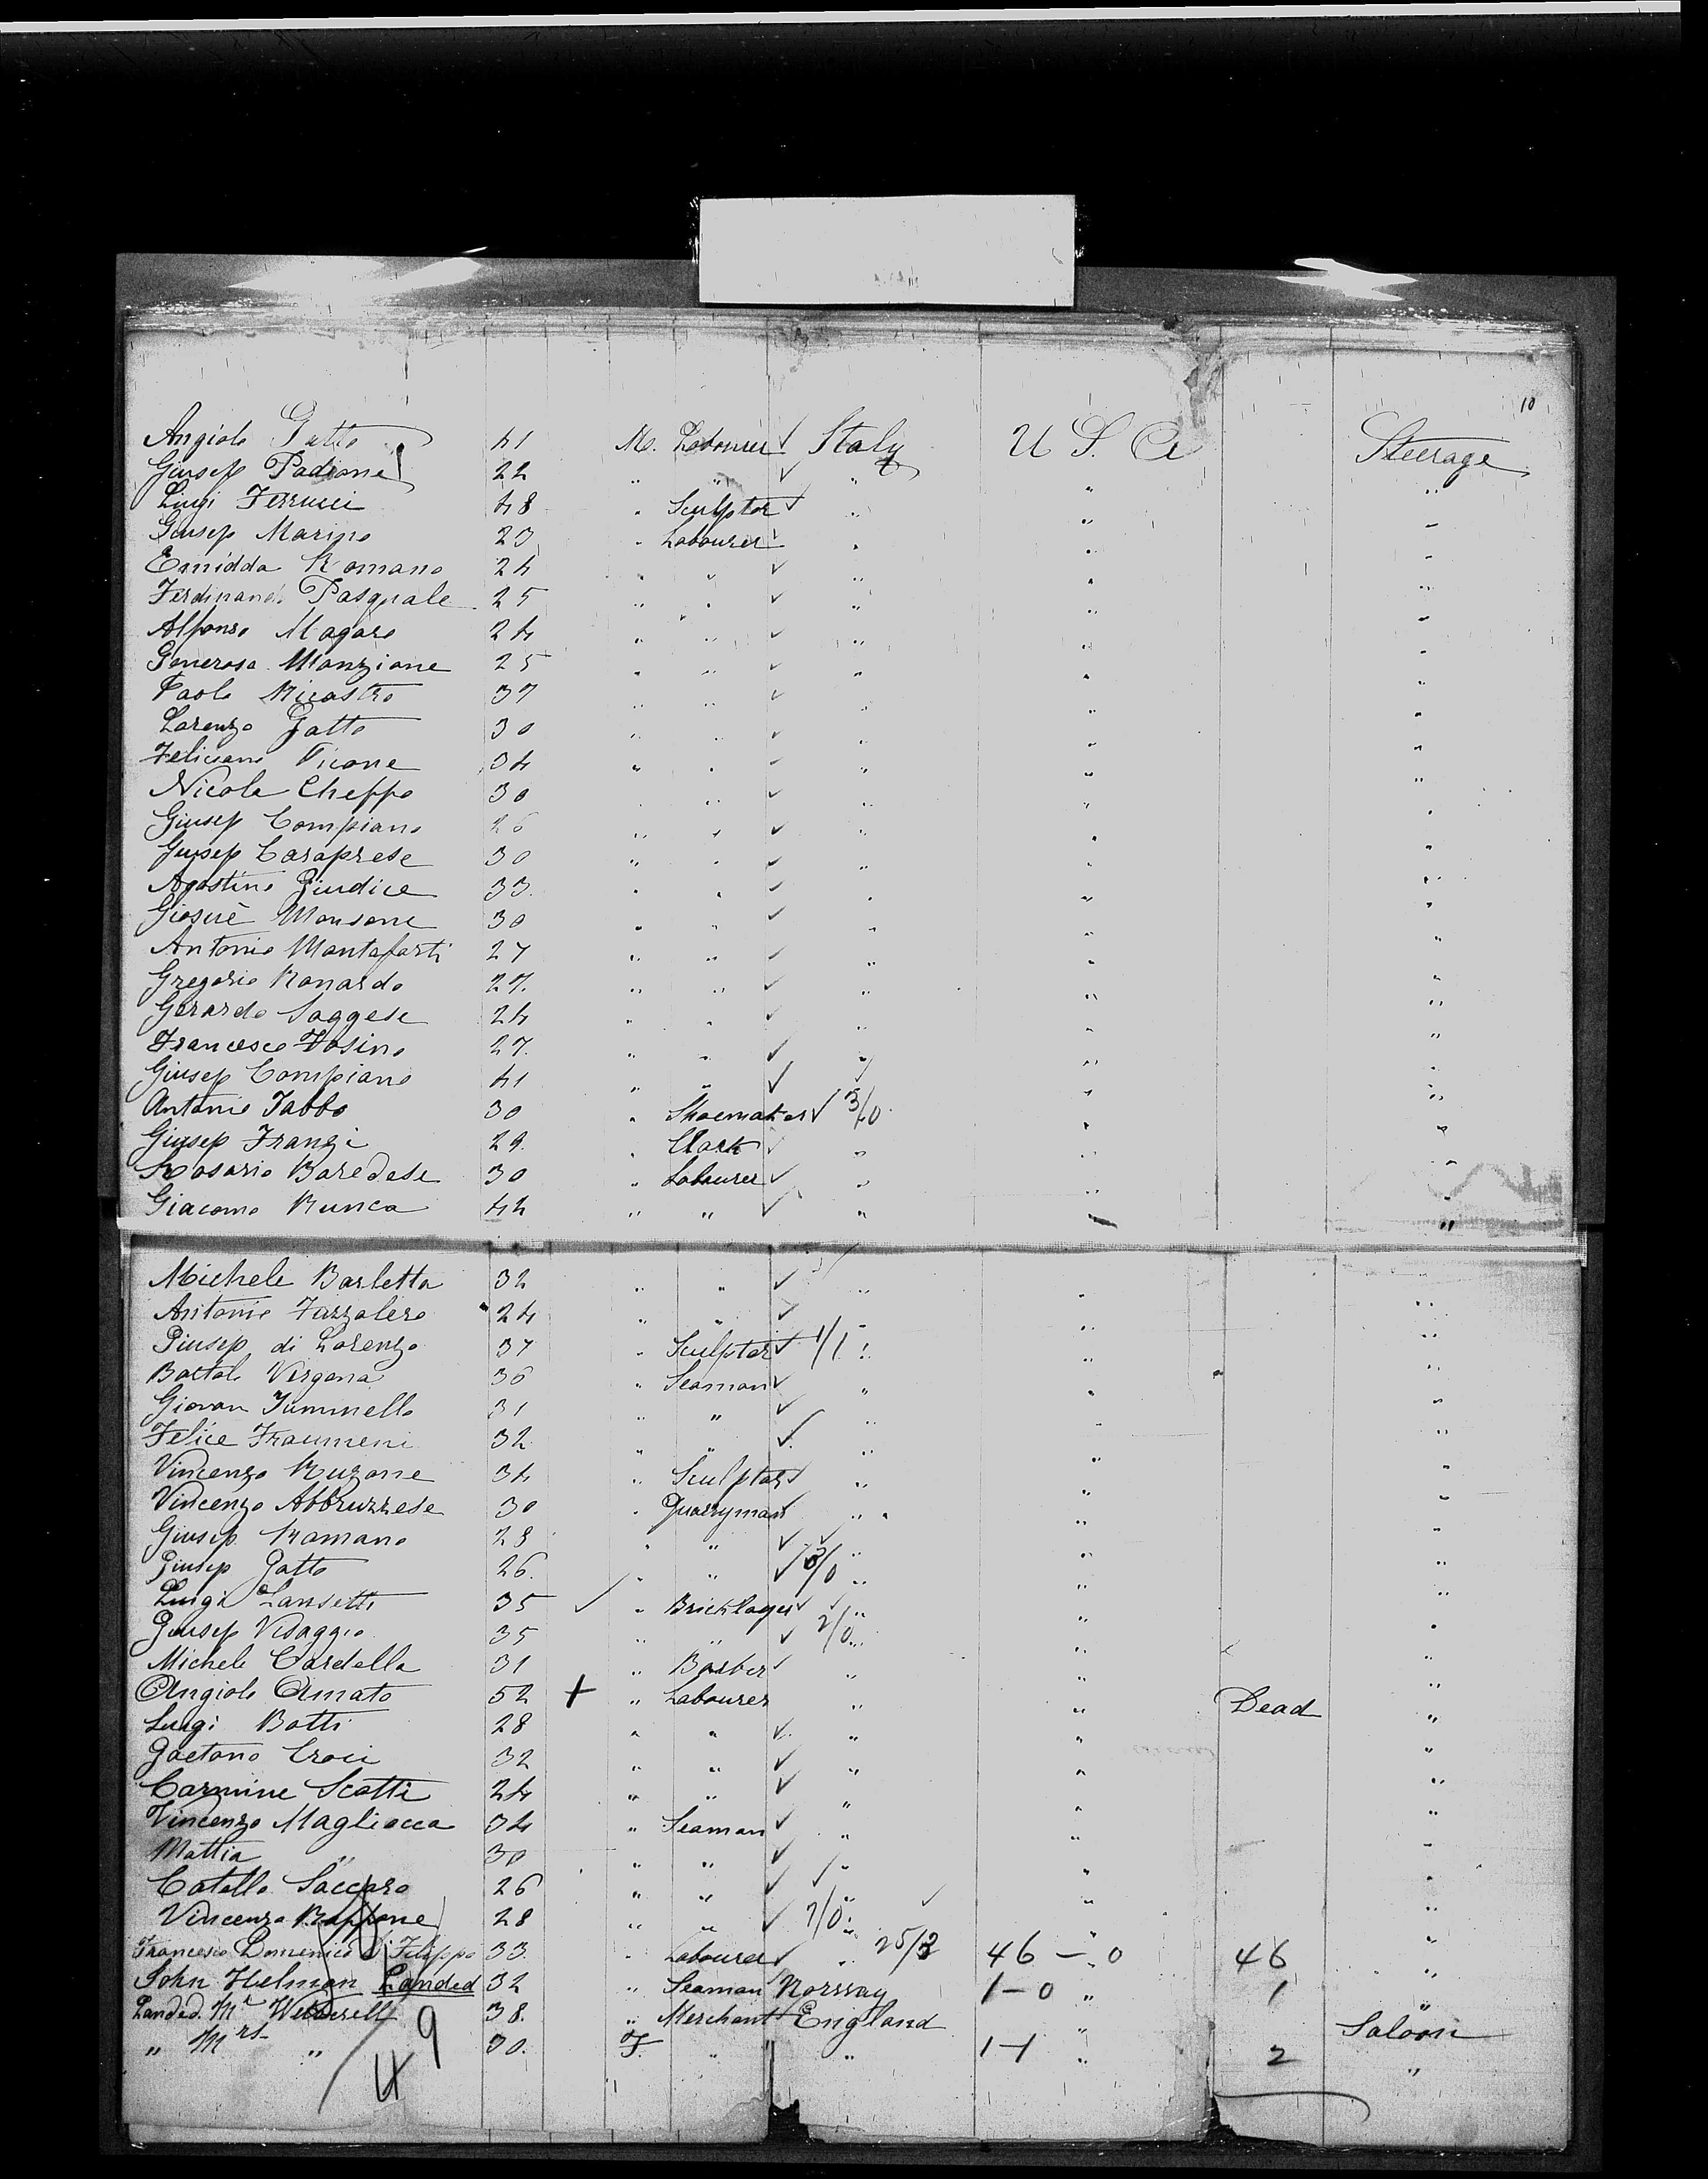 10
Angiolo Gatto 41 M. Labourer ✓ Italy U S. A Steerage
Giusep Padrone 22 " " ✓ " " "
Luigi Ferrucci 48 " Sculptor ✓ " " "
Giusep Marino 23 " Labourer ✓ " " "
Emidda Romano 24 " " ✓ " " "
Ferdinando Pasquale 25 " " ✓ " " "
Alfonso Magaro 24 " " ✓ " " "
Generoso Manzione 25 " " ✓ " " "
Paolo Nicastro 37 " " ✓ " " "
Lorenzo Gatto 30 " " ✓ " " "
Feliciano Picone 34 " " ✓ " " "
Nicola Cheffo 30 " " ✓ " " "
Giusep Compiano 26 " " ✓ " " "
Giusep Caraprese 30 " " ✓ " " "
Agostino Giudice 33. " " ✓ " " "
Giosuè Mansone 30 " " ✓ " " "
Antonio Montaforti 27 " " ✓ " " "
Gregorio Ronardo 27. " " ✓ " " "
Gerardo Saggese 24 " " ✓ " " "
Francesco Fosino 27. " " ✓ " " "
Giusep Compiano 41 " " ✓ " " "
Antonio Iabbo 30 " Shoemaker ✓ 3/0 " "
Giusep Franzi 29. " Clark ✓ " " "
Rosario Baredese 30 " Labourer ✓ " " "
Giacomo Runca 42 " " ✓ " " "
Michele Barletta 32 " " ✓ " " "
Antonio Fazzolero 24 " " ✓ " " "
Giusep di Lorenzo 37 " Sculptor ✓ 1/1 " " "
Bartolo Vergona 36 " Seaman ✓ " " "
Giovan Iuminello 31 " " ✓ " " "
Felice Fraumeni 32 " " ✓ " " "
Vincenzo Ruzone 34 " Sculptor ✓ " " "
Vincenzo Abbruzzese 30 " Quarryman ✓ " " "
Giusep Romano 28 " " ✓ " " "
Giusep Gatto 26. " " ✓ 3/0 " " "
Luigi Lansetti 35 ✓ " Bricklayer ✓ " " "
Giusep Vidaggio 35 " " ✓ 2/0 " " "
Michele Cardella 31 " Barber ✓ " " "
Angiolo Amato 52 + " Labourer " " Dead "
Luigi Botti 28 " " ✓ " " "
Gaetano Croci 32 " " ✓ " " "
Carmine Scotti 24 " " ✓ " " "
Vincenzo Magliocca 34 " Seaman ✓ " " "
Mattia " 30 " " ✓ " " "
Catello Saccaro 26 " " ✓ " " "
Vincenzo 28 " " ✓ 7/0 " " "
Francesco Domenico d Filippo 33. " Labourer ✓ " 25/3 46 — 0 " 46 "
John Helman Landed 32 " Seaman Norway 1-0 " 1 "
Landed. Mr Wetherell 38. " Merchant England " Saloon
" Mrs " 30. F. " " 1-1 " 2 "
49